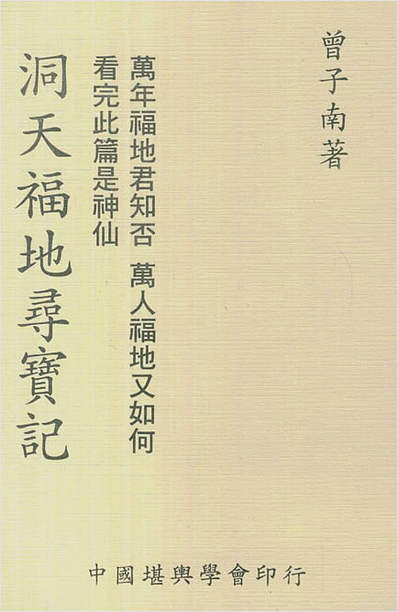 曾子南著
萬年福地君知否 萬人福地又如何
看完此篇是神仙
洞天福地尋寶記
中國堪輿學會印行